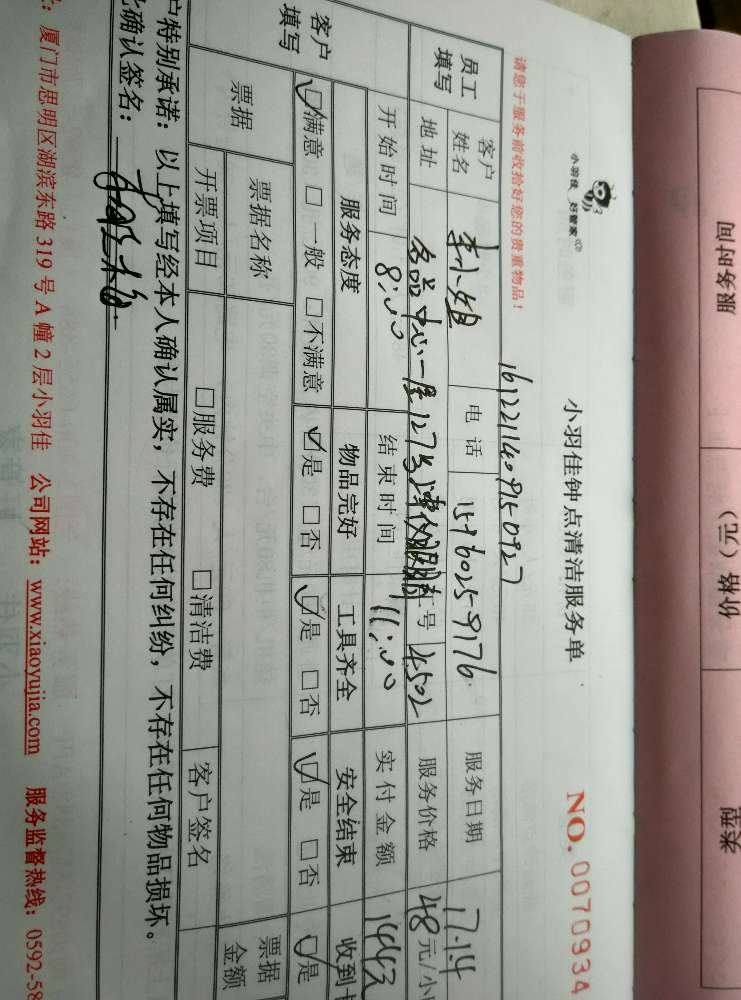 小羽佳 好管家
小羽佳钟点清洁服务单
NO. 0070934
请您于服务前收拾好您的贵重物品！
1612211409150927
员工填写
客户姓名 李小姐 电话 15960259176 服务日期 17.1.4
地址 名品中心一层127号 工号 4502 服务价格 48元/小
开始时间 8:00 结束时间 11:00 实付金额 144元
客户填写
服务态度 物品完好 工具齐全 安全结束 收到
☑满意 □一般 □不满意 ☑是 □否 ☑是 □否 ☑是 □否 ☑是
票据 票据名称 票据金额
开票项目 □服务费 □清洁费 客户签名
户特别承诺：以上填写经本人确认属实，不存在任何纠纷，不存在任何物品损坏。
此确认签名：
厦门市思明区湖滨东路319号A幢2层小羽佳 公司网站：www.xiaoyujia.com 服务监督热线：0592-58
服务时间
价格（元）
类型